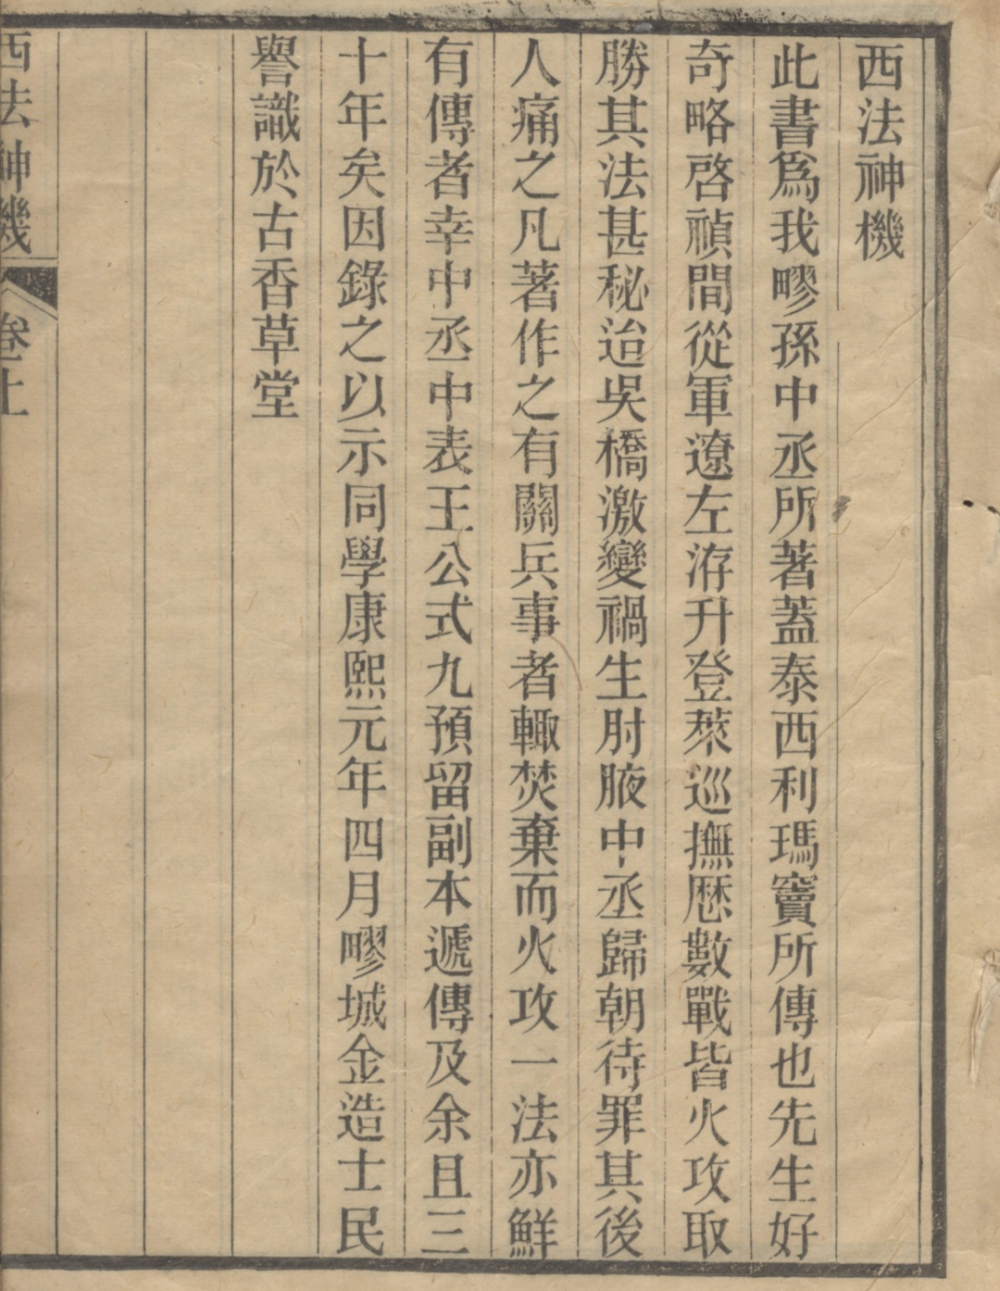 西法神機
此書爲我疁孫中丞所著蓋泰西利瑪竇所傳也先生好
奇略啓禎間從軍遼左洊升登萊巡撫歷數戰皆火攻取
勝其法甚秘迨吳橋激變禍生肘腋中丞歸朝待罪其後
人痛之凡著作之有關兵事者輒焚棄而火攻一法亦鮮
有傳者幸中丞中表王公式九預留副本遞傳及余且三
十年矣因錄之以示同學康熙元年四月疁城金造士民
譽識於古香草堂
西法神機 卷上